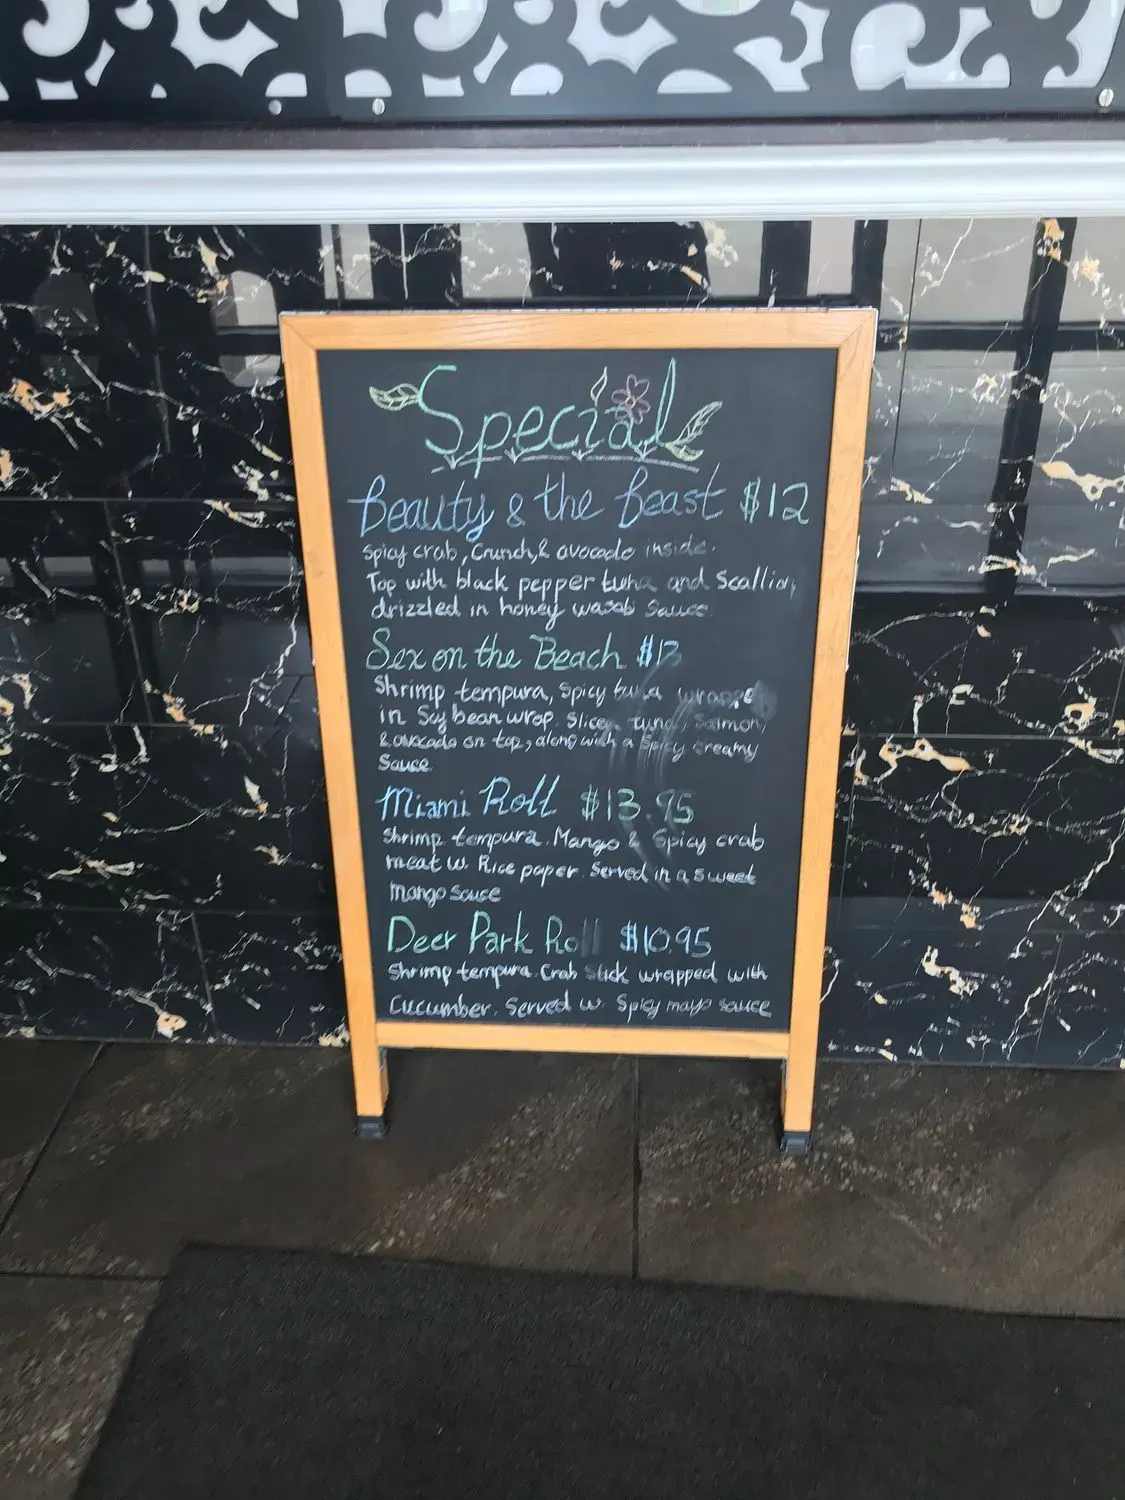 Special
Beauty & the Beast $12
Spicy crab, Crunch, & avocado inside.
Top with black pepper tuna and Scallion,
drizzled in honey wasabi Sauce.
Sex on the Beach $13
Shrimp tempura, Spicy tuna wrapped
in Soy bean wrap. Slicey tuna, Salmon,
& avocado on top, along with a Spicy creamy
Sauce.
Miami Roll $13.95
Shrimp tempura. Mango & Spicy crab
meat w. Rice paper. Served in a Sweet
Mango Sauce
Deer Park Roll $10.95
Shrimp tempura. Crab Stick wrapped with
Cucumber. Served w. Spicy mayo sauce